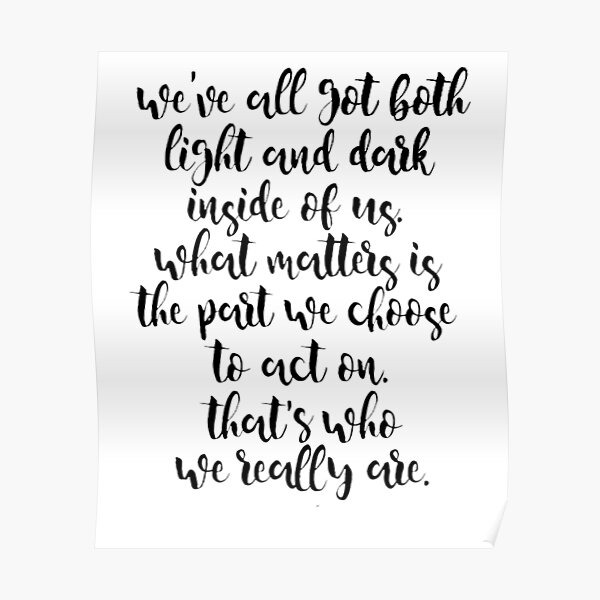 we've all got both
light and dark
inside of us.
what matters is
the part we choose
to act on.
that's who
we really are.